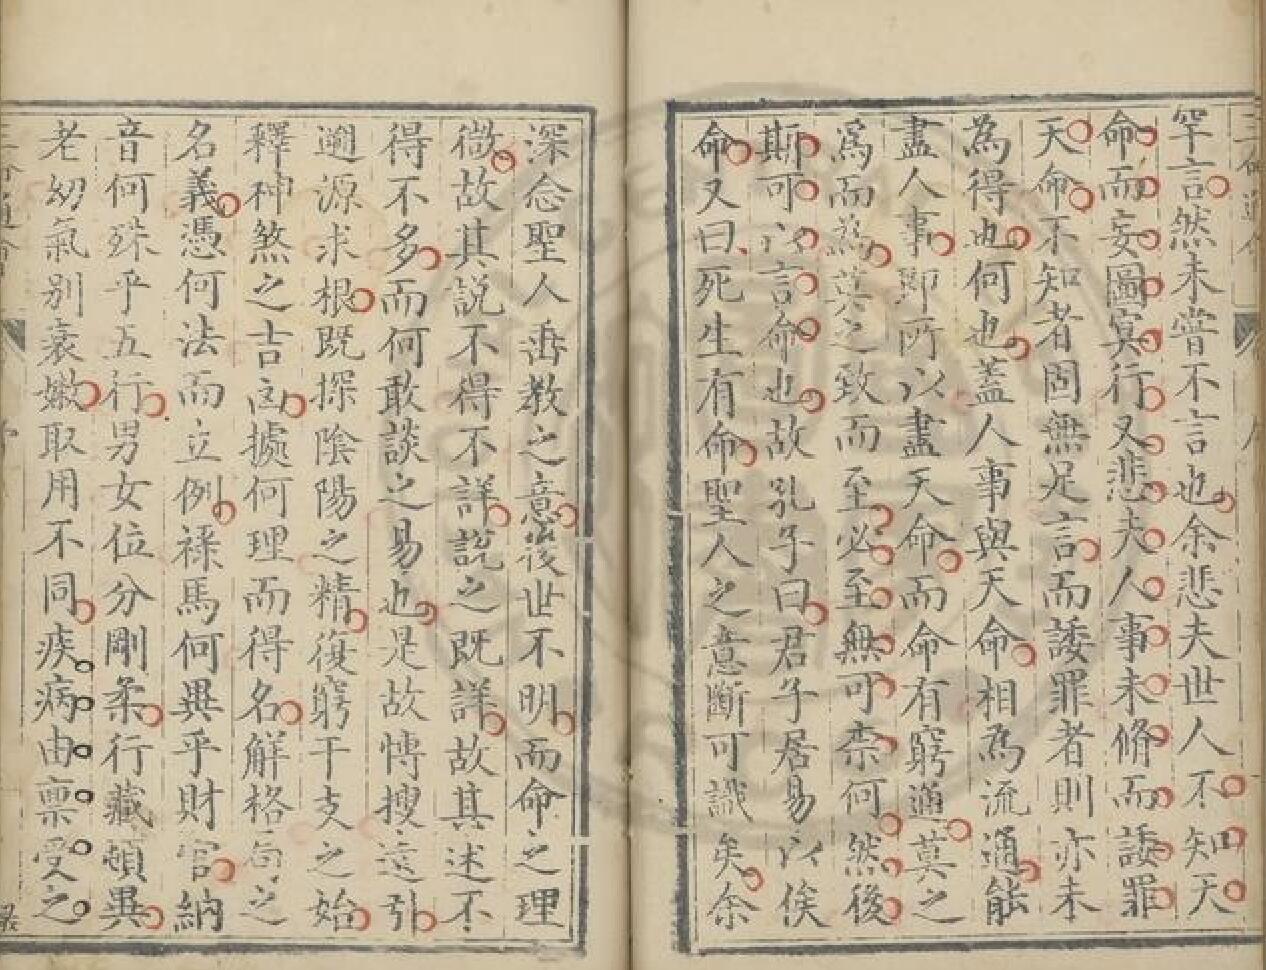 罕言然未嘗不言也余悲夫世人不知天
命而妄圖冥行又悲夫人事未脩而諉罪
天命不知者固無足言而諉罪者則亦未
為得也何也蓋人事與天命相為流通能
盡人事即所以盡天命而命有窮通莫之
為而為莫之致而至必至無可柰何然後
斯可以言命也故孔子曰君子居易以俟
命又曰死生有命聖人之意斷可識矣余
深念聖人垂教之意後世不明而命之理
微故其說不得不詳說之既詳故其述不
得不多而何敢談之易也是故博搜遠引
遡源求根既探陰陽之精復窮干支之始
釋神煞之吉凶據何理而得名解格局之
名義憑何法而立例祿馬何異乎財官納
音何殊乎五行男女位分剛柔行藏頓異
老幼氣別衰嫩取用不同疾病由稟受之